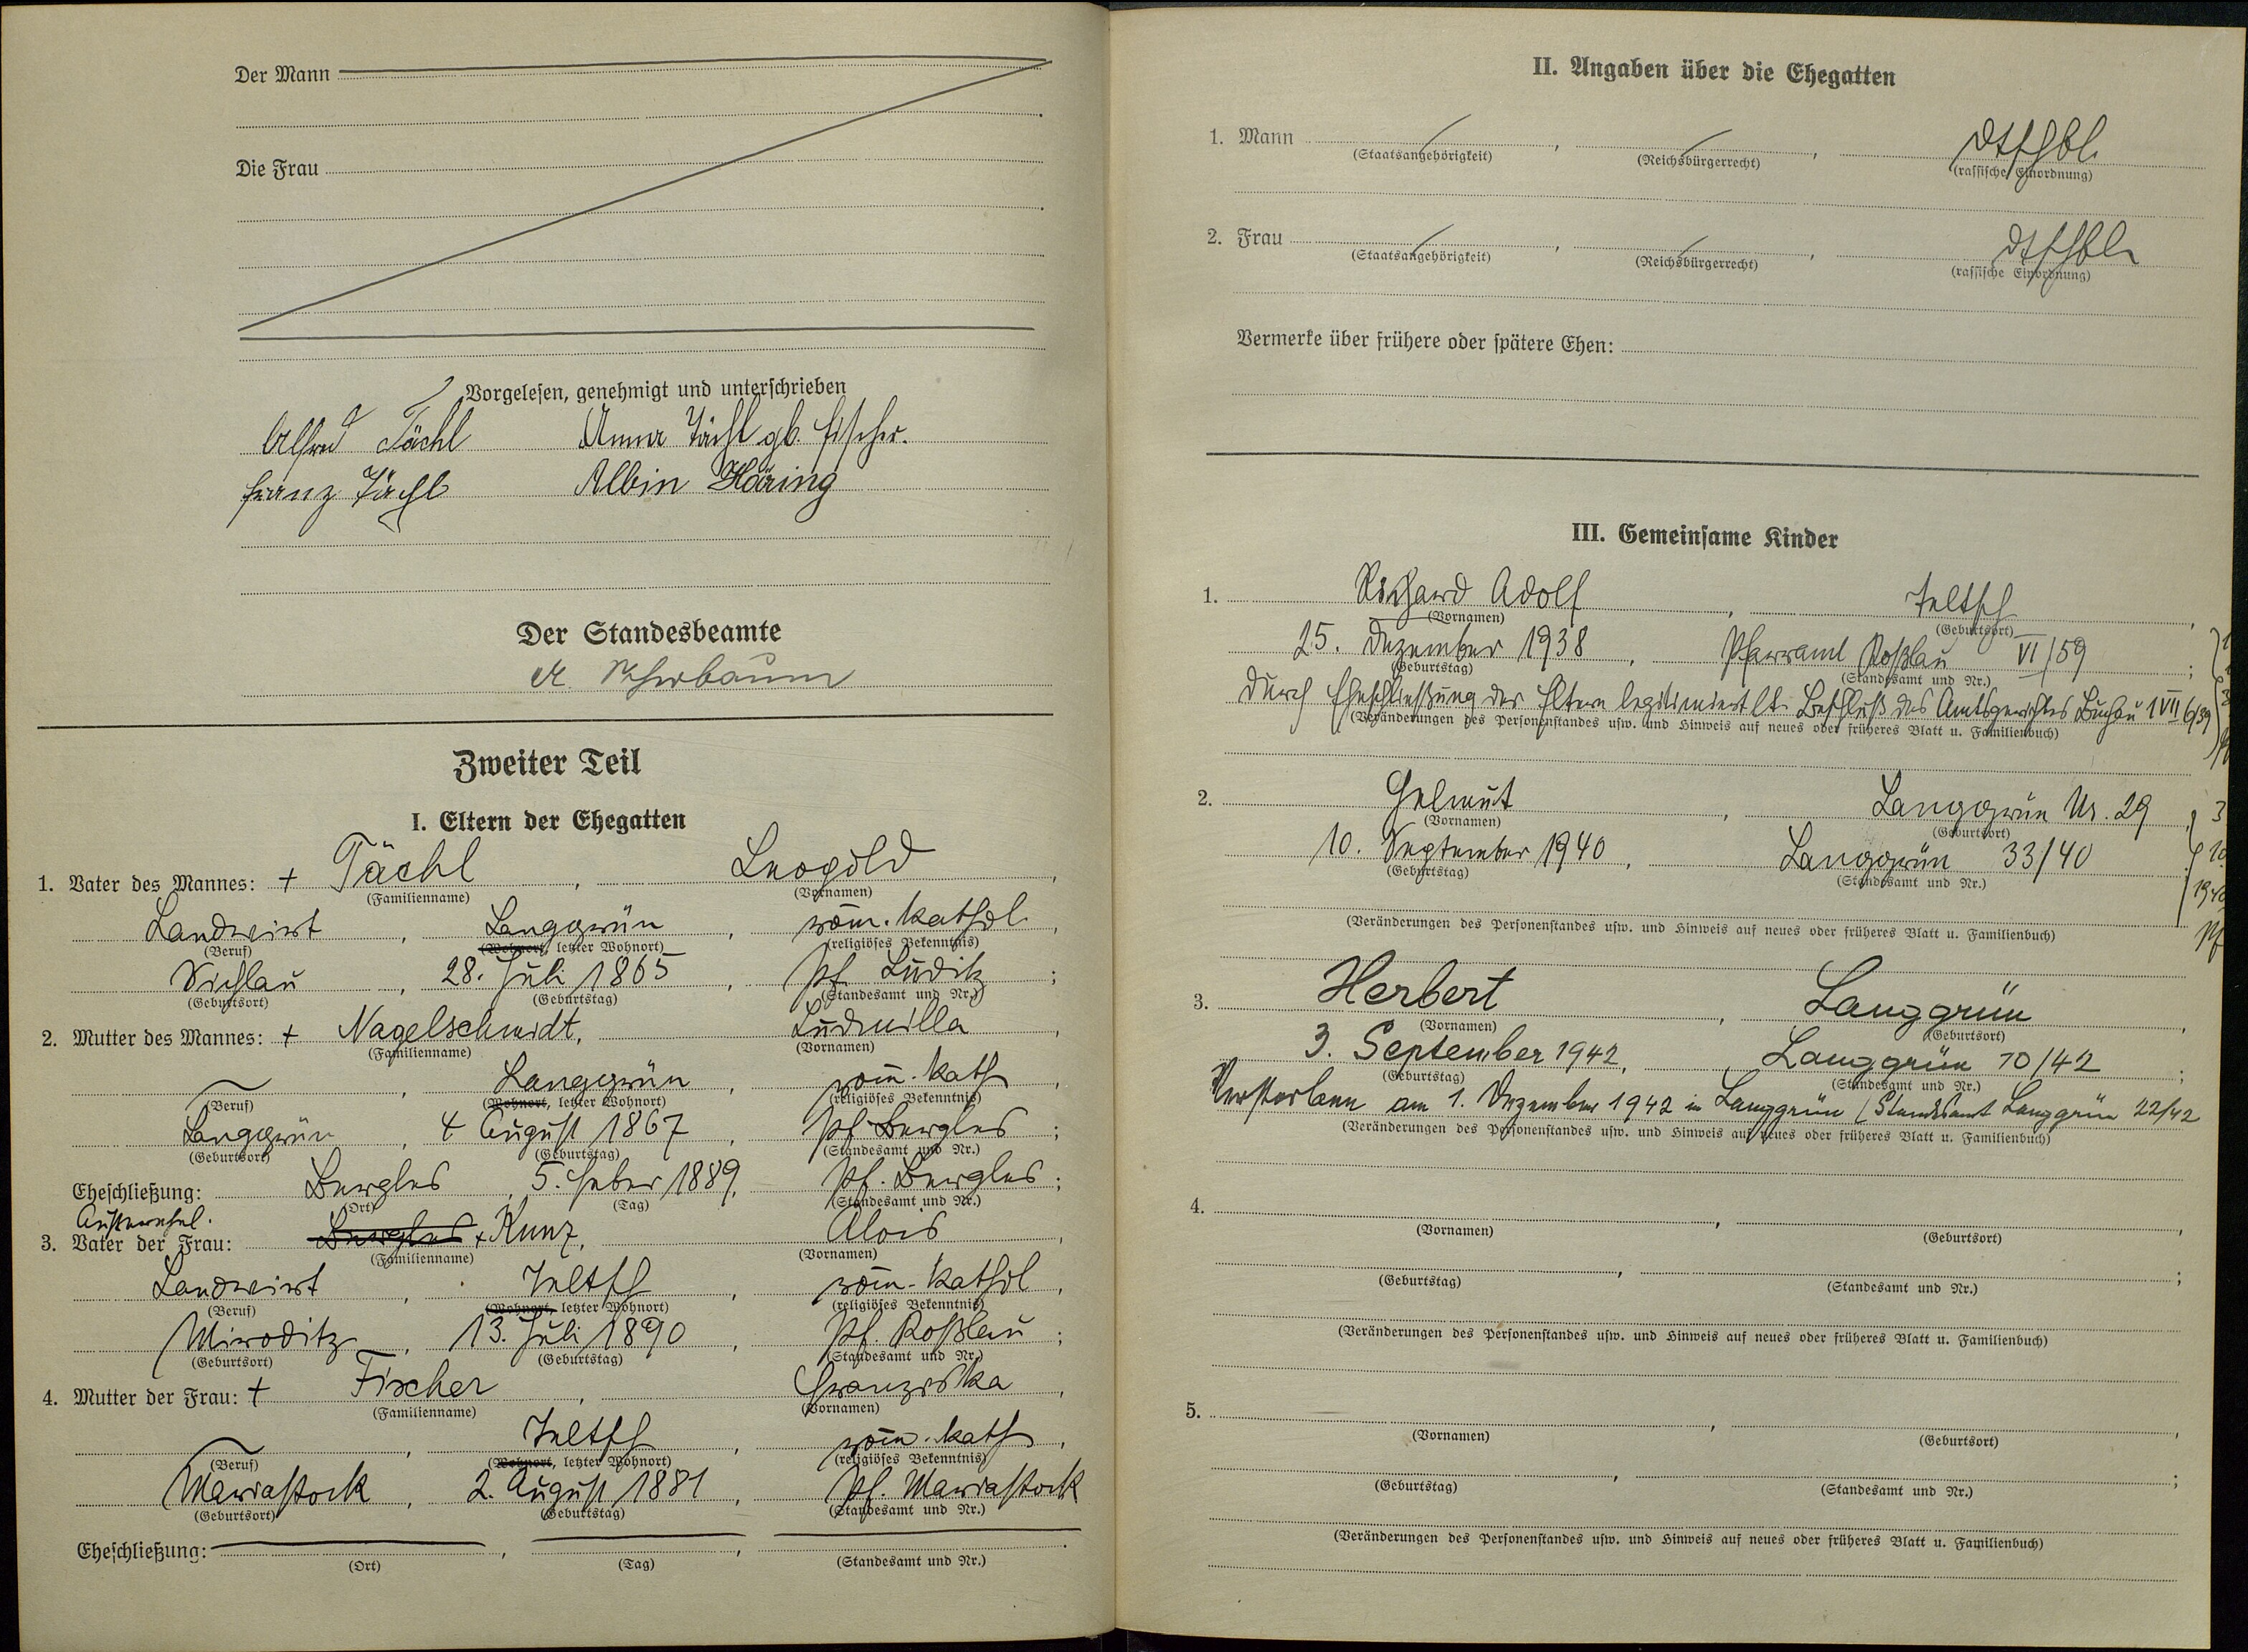 Der Mann
Die Frau
Vorgelesen, genehmigt und unterschrieben
Alfred Tächl Anna Tächl gb. Fischer.
Franz Tächl Albin Häring
Der Standesbeamte
Zweiter Teil
I. Eltern der Ehegatten
1. Vater des Mannes: + Tächl, Leopold,
(Familienname) (Vornamen)
Landwirt, Langgrün, röm. kathol.
(Beruf) (Wohnort, letzter Wohnort) (religiöses Bekenntnis)
Sichlau, 28. Juli 1865, Pf. Luditz;
(Geburtsort) (Geburtstag) (Standesamt und Nr.)
2. Mutter des Mannes: + Nagelschmidt, Ludmilla,
(Familienname) (Vornamen)
Langgrün, röm. kath,
(Beruf) (Wohnort, letzter Wohnort) (religiöses Bekenntnis)
Langgrün, 4 August 1867, Pf. Bergles;
(Geburtsort) (Geburtstag) (Standesamt und Nr.)
Eheschließung: Bergles, 5. Feber 1889, Pf. Bergles;
(Ort) (Tag) (Standesamt und Nr.)
Außerehel.
3. Vater der Frau: Bergles + Kunz, Alois,
(Familienname) (Vornamen)
Landwirt, Jeltsch, röm. kathol,
(Beruf) (Wohnort, letzter Wohnort) (religiöses Bekenntnis)
Miroditz, 13. Juli 1890, Pf. Koßlau;
(Geburtsort) (Geburtstag) (Standesamt und Nr.)
4. Mutter der Frau: + Fischer, Franziska,
(Familienname) (Vornamen)
Jeltsch, röm. kath,
(Beruf) (Wohnort, letzter Wohnort) (religiöses Bekenntnis)
Mariastock, 2. August 1881, Pf. Mariastock
(Geburtsort) (Geburtstag) (Standesamt und Nr.)
Eheschließung:
(Ort) (Tag) (Standesamt und Nr.)
II. Angaben über die Ehegatten
1. Mann / , / , dtschbl.
(Staatsangehörigkeit) (Reichsbürgerrecht) (rassische Einordnung)
2. Frau / , / , dtschbl.
(Staatsangehörigkeit) (Reichsbürgerrecht) (rassische Einordnung)
Vermerke über frühere oder spätere Ehen:
III. Gemeinsame Kinder
1. Richard Adolf, Jeltsch,
(Vornamen) (Geburtsort)
25. Dezember 1938, Pfarramt Koßlau VI/59;
(Geburtstag) (Standesamt und Nr.)
durch Eheschließung der Eltern legitimiert lt. Beschluß des Amtsgerichtes Buchau 1 VII 6/39
(Veränderungen des Personenstandes usw. und Hinweis auf neues oder früheres Blatt u. Familienbuch)
2. Helmut, Langgrün Nr. 29
(Vornamen) (Geburtsort)
10. September 1940, Langgrün 33/40
(Geburtstag) (Standesamt und Nr.)
(Veränderungen des Personenstandes usw. und Hinweis auf neues oder früheres Blatt u. Familienbuch)
3. Herbert, Langgrün,
(Vornamen) (Geburtsort)
3. September 1942, Langgrün 10/42;
(Geburtstag) (Standesamt und Nr.)
Verstorben am 1. Dezember 1942 in Langgrün (Standesamt Langgrün 22/42
(Veränderungen des Personenstandes usw. und Hinweis auf neues oder früheres Blatt u. Familienbuch)
4.
(Vornamen) (Geburtsort)
(Geburtstag) (Standesamt und Nr.)
(Veränderungen des Personenstandes usw. und Hinweis auf neues oder früheres Blatt u. Familienbuch)
5.
(Vornamen) (Geburtsort)
(Geburtstag) (Standesamt und Nr.)
(Veränderungen des Personenstandes usw. und Hinweis auf neues oder früheres Blatt u. Familienbuch)